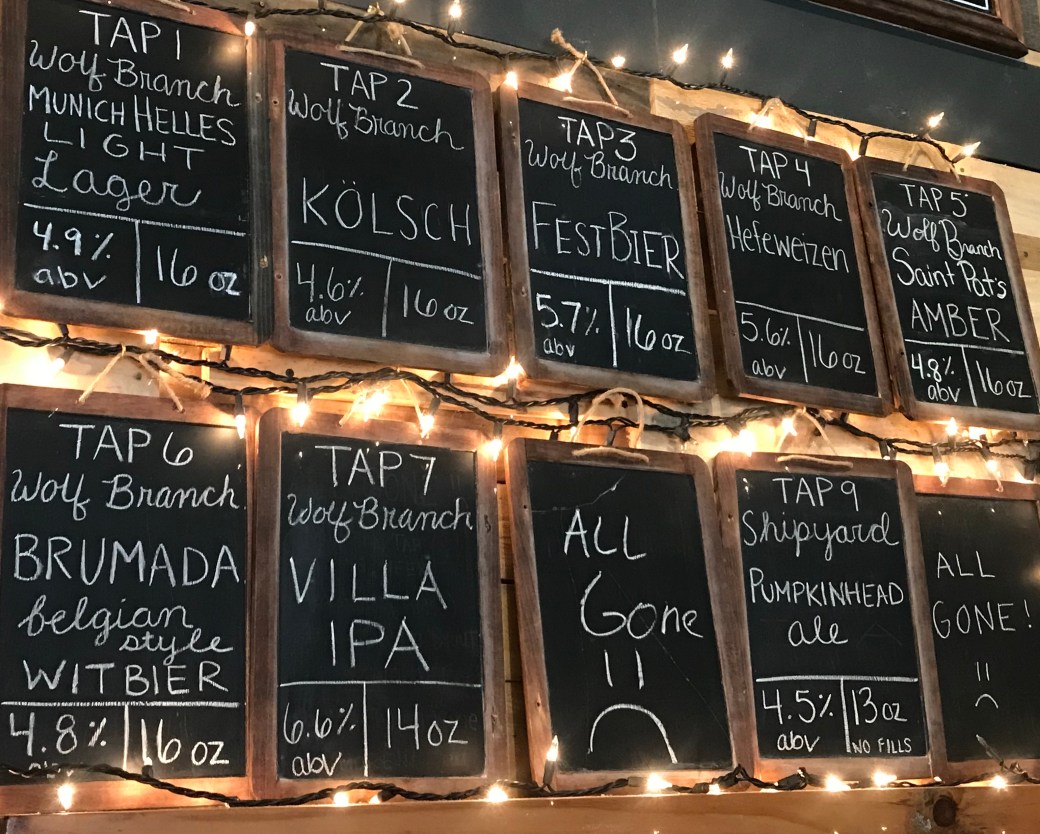 TAP 1
Wolf Branch
MUNICH HELLES
LIGHT
Lager
4.9%
abv
16 oz
TAP 2
Wolf Branch
KÖLSCH
4.6%
abv
16 oz
TAP 3
Wolf Branch
FESTBIER
5.7%
abv
16 oz
TAP 4
Wolf Branch
Hefeweizen
5.6%
abv
16 oz
TAP 5
Wolf Branch
Saint Pat's
AMBER
4.8%
abv
16 oz
TAP 6
Wolf Branch
BRUMADA
belgian
style
WITBIER
4.8%
abv
16 oz
TAP 7
Wolf Branch
VILLA
IPA
6.6%
abv
14 oz
ALL
Gone
TAP 9
Shipyard
PUMPKINHEAD
ale
4.5%
abv
13 oz
NO FILLS
ALL
GONE!